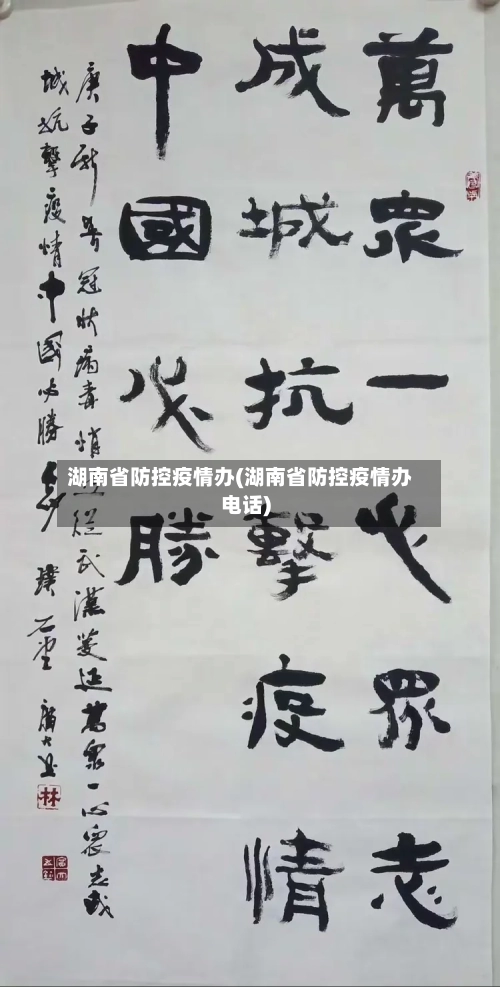 萬眾一心眾志
成城抗擊疫情
中國必勝
庚子新年冠狀病毒悄 從武漢蔓延萬眾一心眾志成
城抗擊疫情中國必勝 璞石堂
林
湖南省防控疫情办(湖南省防控疫情办
电话)